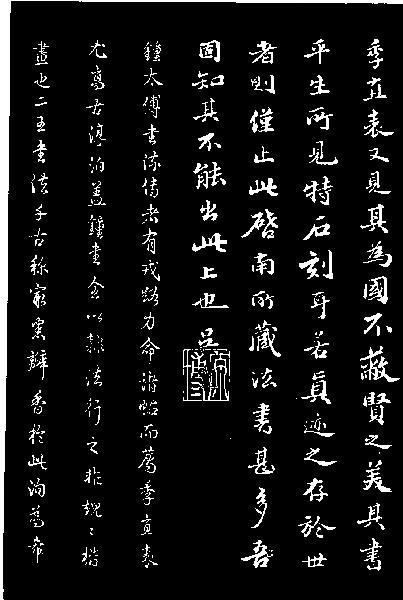 季直表又見其為國不蔽賢之美其書
平生所見特石刻耳若真迹之存於世
者則僅止此啓南所藏法書甚多吾
固知其不能出此上也
鍾太傅書流傳者有戎路力命諸帖而薦季直表
尤高古淳泊蓋鍾書全以隸法行之非規規楷
畫也二王書從千古稱瓣香於此洵為希